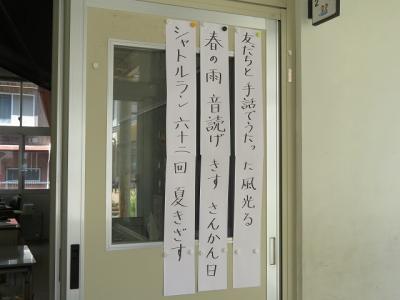 友だちと 手話でうたった 風光る
春の雨 音読げき す さんかん日
シャトルラン 六十二回 夏きざす